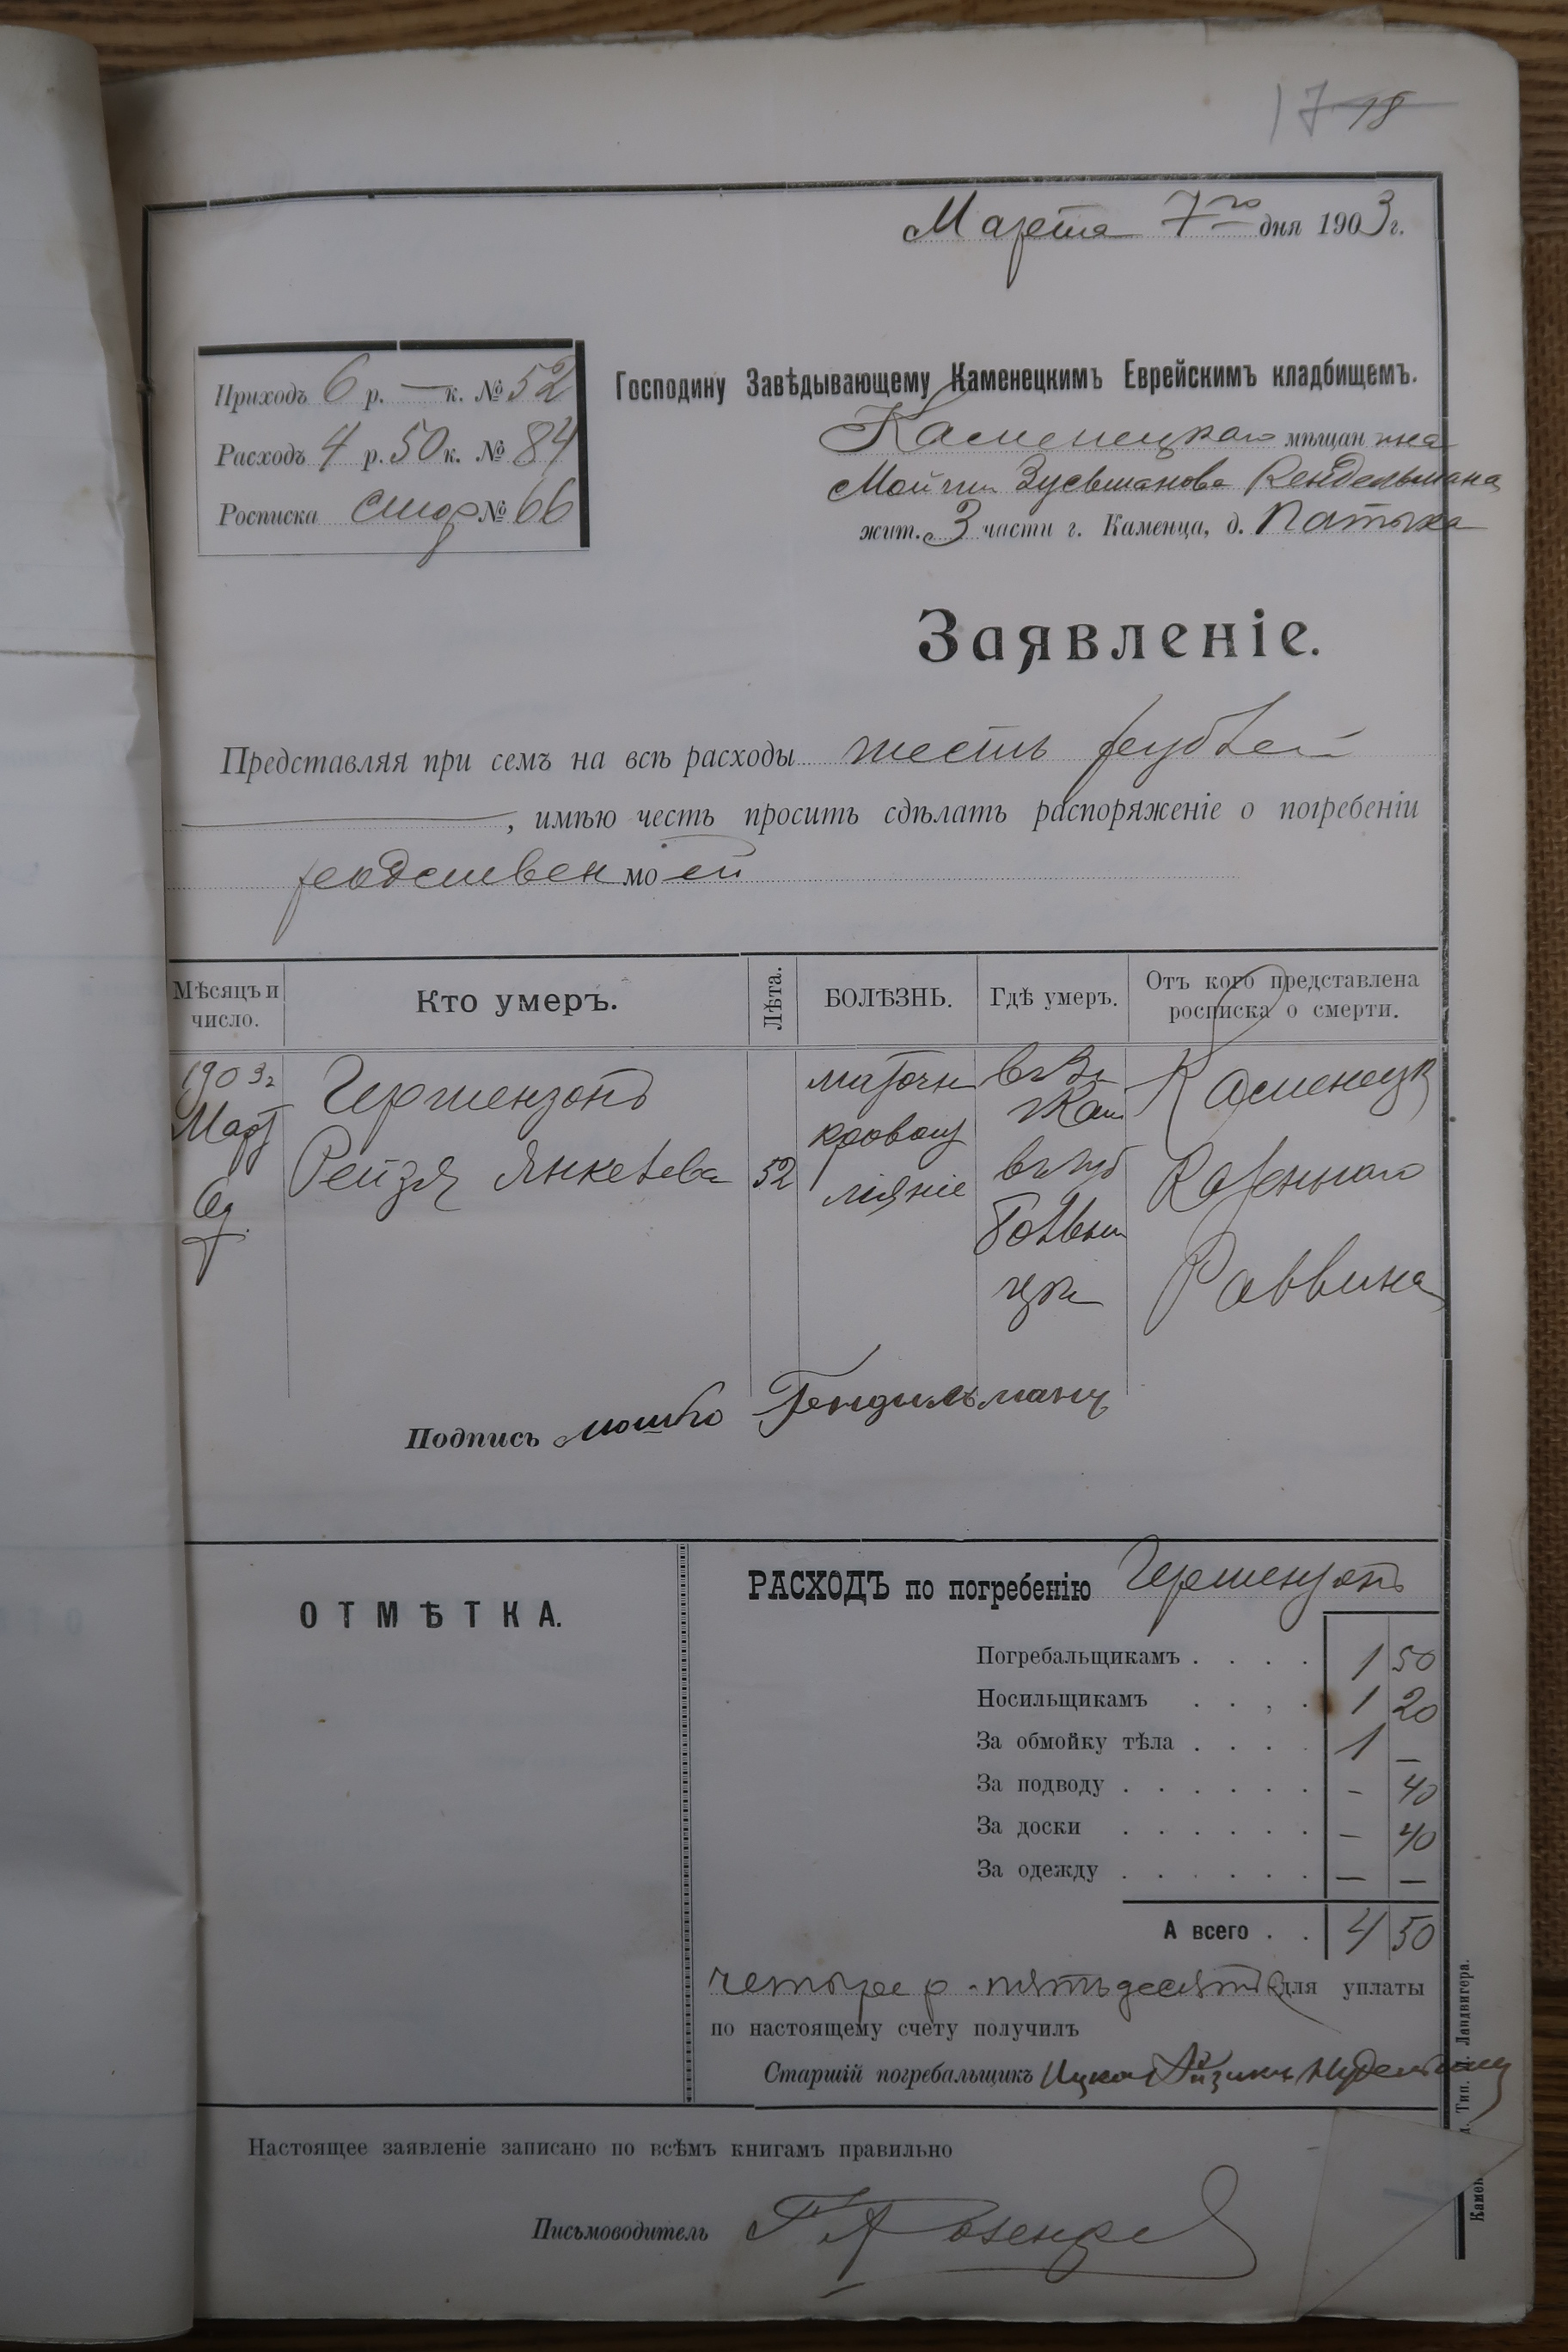 17 18
Марта 7го дня 1903 г.
Приходъ 6 р. — к. № 52
Расходъ 4 р. 50 к. № 84
Росписка № 66
Господину Завѣдывающему Каменецкимъ Еврейскимъ кладбищемъ.
Каменецкаго мѣщанина
жит. 3 части г. Каменца, д.
Заявленіе.
Представляя при семъ на всѣ расходы шесть рублей
—, имѣю честь просить сдѣлать распоряженіе о погребеніи
родствен моей
Мѣсяцъ и число.
Кто умеръ.
Лѣта.
БОЛѢЗНЬ.
Гдѣ умеръ.
Отъ кого представлена росписка о смерти.
1903 г
Март
6д.
Гершензонъ
Рейзя Янкелева
52
маточн
кровоиз
ліяніе
Каменецк
Казеннаго
Раввина
Подпись мошко Гендильманъ
ОТМѢТКА.
РАСХОДЪ по погребенію Гершензонъ
Погребальщикамъ . . . . 1 50
Носильщикамъ . . , . 1 20
За обмойку тѣла . . . . 1 —
За подводу . . . . . . – 40
За доски . . . . . . – 40
За одежду . . . . . . — —
А всего . . 4 50
четыре р. пятьдесятъ к для уплаты
по настоящему счету получилъ
Старшій погребальщикъ Ицко Айзикъ
Настоящее заявленіе записано по всѣмъ книгамъ правильно
Письмоводитель
Тип. Ландвигера.